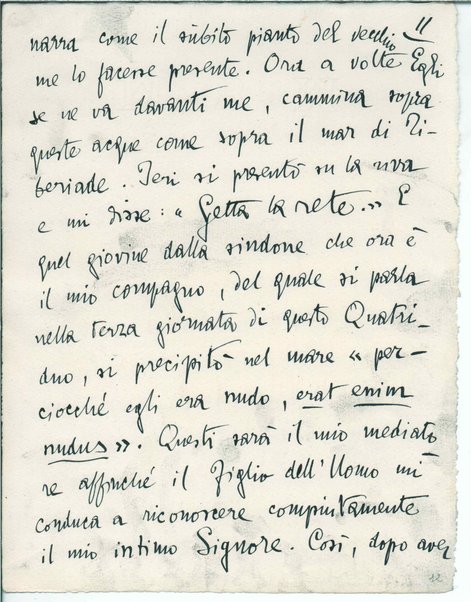 11
narra come il sùbito pianto del vecchio
me lo facesse presente. Ora a volte Egli
se ne va davanti me, cammina sopra
queste acque come sopra il mar di Ti-
beriade. Ieri si presentò su la riva
e mi disse: « Getta la rete. » E
quel giovine dalla sindone che ora è
il mio compagno, del quale si parla
nella terza giornata di questo Quatri-
duo, si precipitò nel mare « per-
ciocché egli era nudo, erat enim
nudus ». Questi sarà il mio mediato
re affinché il Figlio dell'Uomo mi
conduca a riconoscere compiutamente
il mio intimo Signore. Così, dopo aver
12